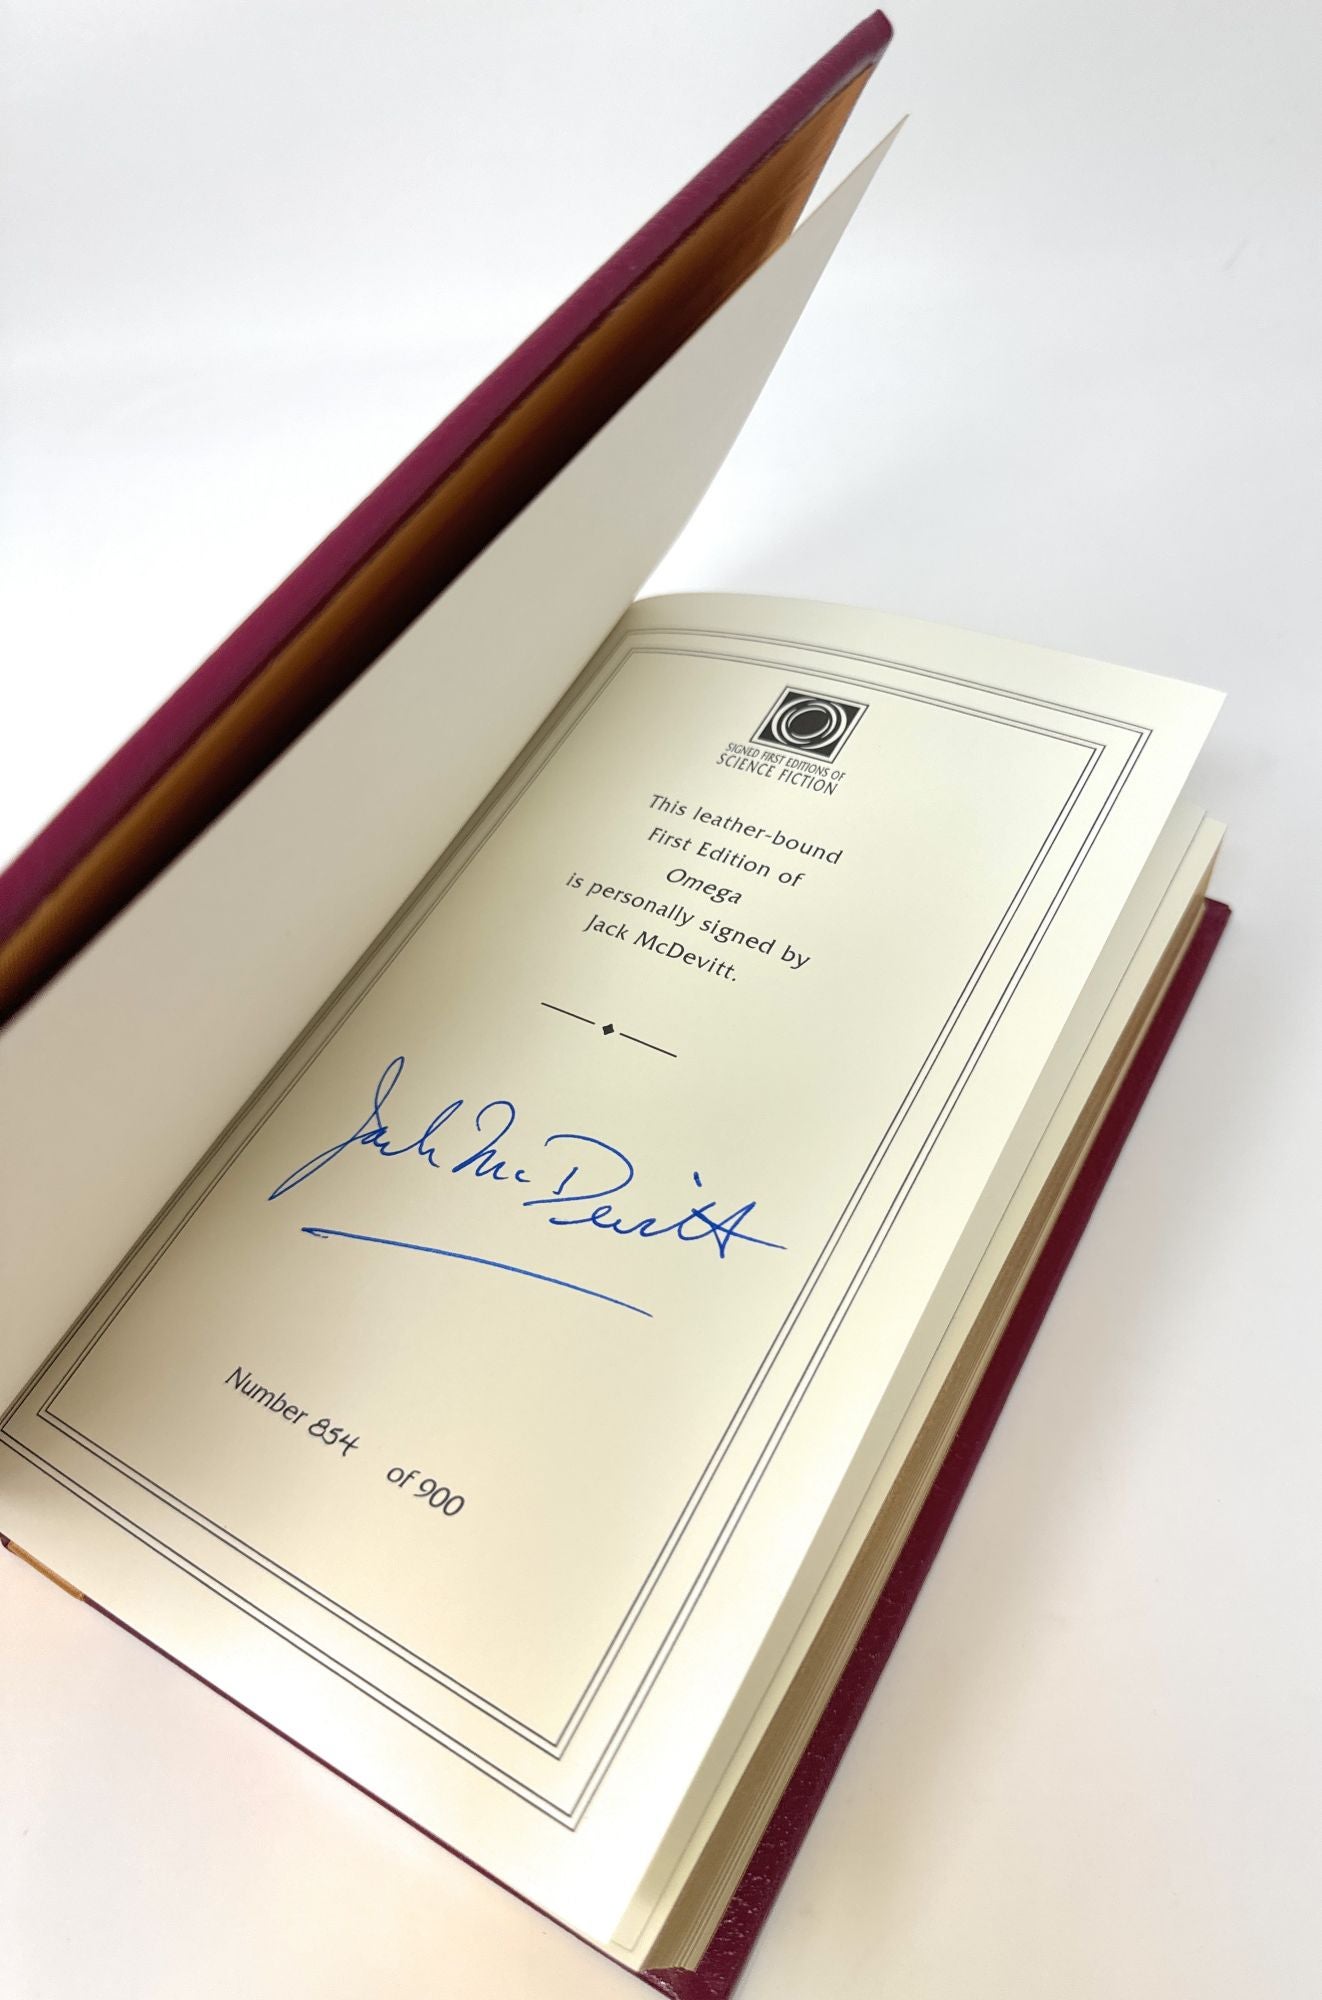 SIGNED FIRST EDITIONS OF
SCIENCE FICTION
This leather-bound
First Edition of
Omega
is personally signed by
Jack McDevitt.
Jack McDevitt
Number 854 of 900